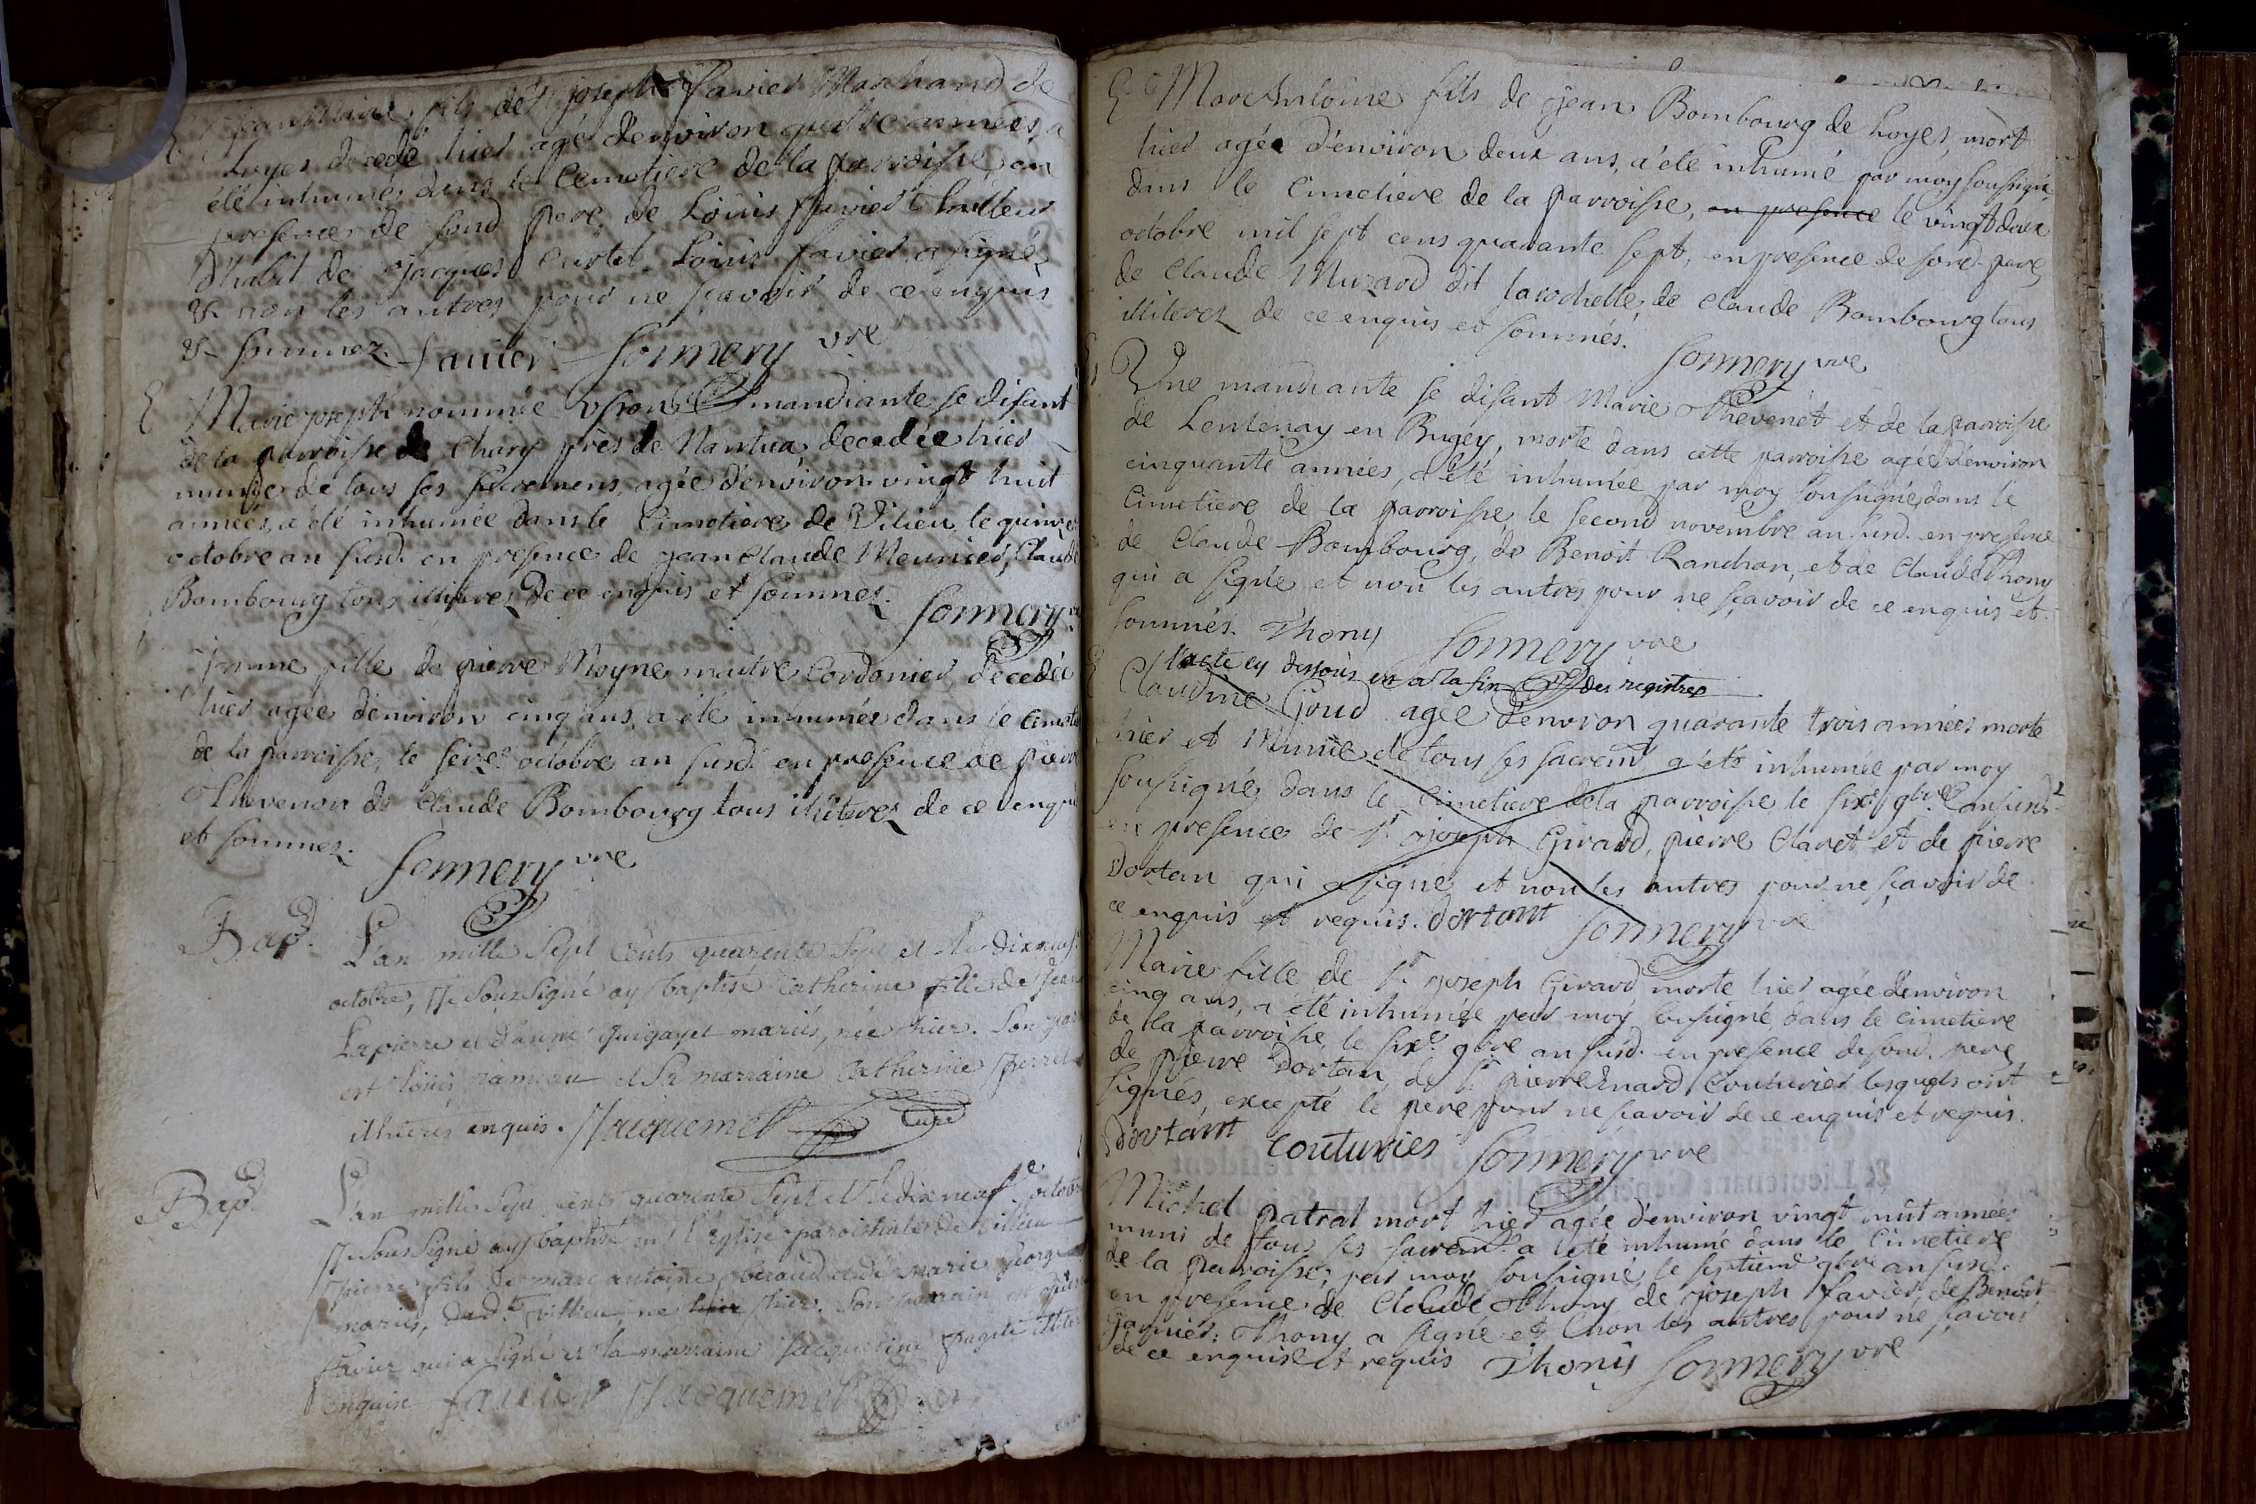 fils de Sr joseph favier Marchand de
Loyes decedé hier agé d'environ quatre années, a
été inhumé dans le Cemetiere de la parroisse en
presence de sond pere, de Loüis favier tailleur
d'habit de jacques Curtel. Loüis favier a signé
& non les autres pour ne sçavoir de ce enquis
& sommez. favier Sonnery vre
Marie joseph nommée mandiante se disant
de la parroisse de Chary près de Nantua decedée hier
munie de tous ses sacremens, agée d'environ vingt huit
années, a été inhumée dans le Cimetiere de Vilieu le quinze
octobre an susd. en presence de jean claude Meunier, Claude
Bombourg tous illiterez de ce enquis et sommez.
Sonnery vre
fille de pierre Moyne maitre Cordonier, decedée
hier agée d'environ cinq ans, a été inhumée dans le
de la parroisse, le seize octobre an susd. en presence de pierre
Thevenon de Claude Bombourg tous illiterez de ce
et sommez.
Sonnery vre
Bap.
L'an mille sept cents quarente sept et le dixneuf
octobre, je soussigné ay baptisé Catherine fille de
Lapierre et d'anne guigayet mariés, née hier. Son
est Loüis rameau et sa marraine Catherine
illiteres enquis. Jacquemet Curé
Bap.
L'an mille sept cents quarente sept et le dixneuf octobre
je soussigné ay baptisé en l'Eglise paroissiale de villieu
pierre fils de marc antoine beraud et de marie george
mariés, dud. villieu, né hier. Son parrain
favier qui a signé et la marraine Jacqueline
enquise favier Jacquemet
Marc Antoine fils de jean Bombourg de Loyes, mort
hier agée d'environ deux ans, a été inhumé par moy soussigné
dans le Cimetiere de la parroisse, en presence le vingt deux
octobre mil sept cens quarante sept, en presence de sond. pere,
de Claude Muzard dit larochelle, de Claude Bombourg tous
illiterez de ce enquis et sommés.
Sonnery vre
Une mandiante se disant Marie Thevenet et de la parroisse
de Lentenay en Bugey, morte dans cette parroisse agée d'environ
cinquante années, a été inhumée par moy soussigné, dans le
Cimetiere de la parroisse, le second novembre an susd. en presence
de Claude Bombourg, de Benoît Randhon, et de Claude Thony
qui a signé et non les autres pour ne sçavoir de ce enquis et
sommés. Thony Sonnery vre
l'acte cy dessous est a la fin des registres
Claudine Goud agée d'environ quarante trois années morte
hier et Munie de tous ses sacremt a été inhumée par moy
soussigné, dans le Cimetiere de la parroisse le sixe 9bre an susd
en presence de Sr joseph Girard, pierre Claret et de pierre
Dortan qui a signé et non les autres pour ne sçavoir de
ce enquis et requis. dortant Sonnery vre
Marie fille de Sr joseph Girard morte hier agée d'environ
cinq ans, a été inhumée par moy soussigné dans le cimetiere
de la parroisse, le sixe 9bre an susd. en presence de sond. pere
de pierre Dortan, de Sr pierre Enard Couturier lesquels ont
signés, excepté le pere pour ne sçavoir de ce enquis et requis.
dortant Couturier Sonnery vre
Michel patrat mort hier agée d'environ vingt nuit années
muni de tous ses sacremt. a été inhumé dans le Cimetiere
de la parroisse, par moy soussigné, le septieme 9bre an susd.
en presence de Claude Thony de joseph favier, de Benoit
garnier: Thony a signé et non les autres pour ne sçavoir
de ce enquis et requis Thony Sonnery vre